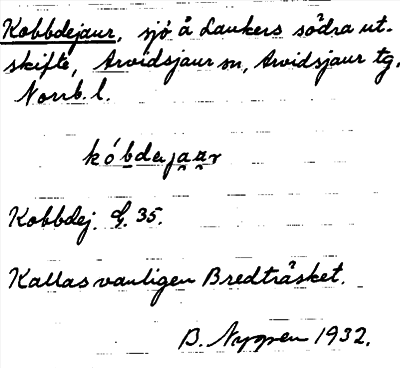 Kobbdejaur, sjö å Laukers södra ut-
skifte, Arvidsjaur sn, Arvidsjaur tg.
Norrb. l.
kóbdejaar
Kobbdej. G. 35.
Kallas vanligen Bredträsket.
B. Nygren 1932.